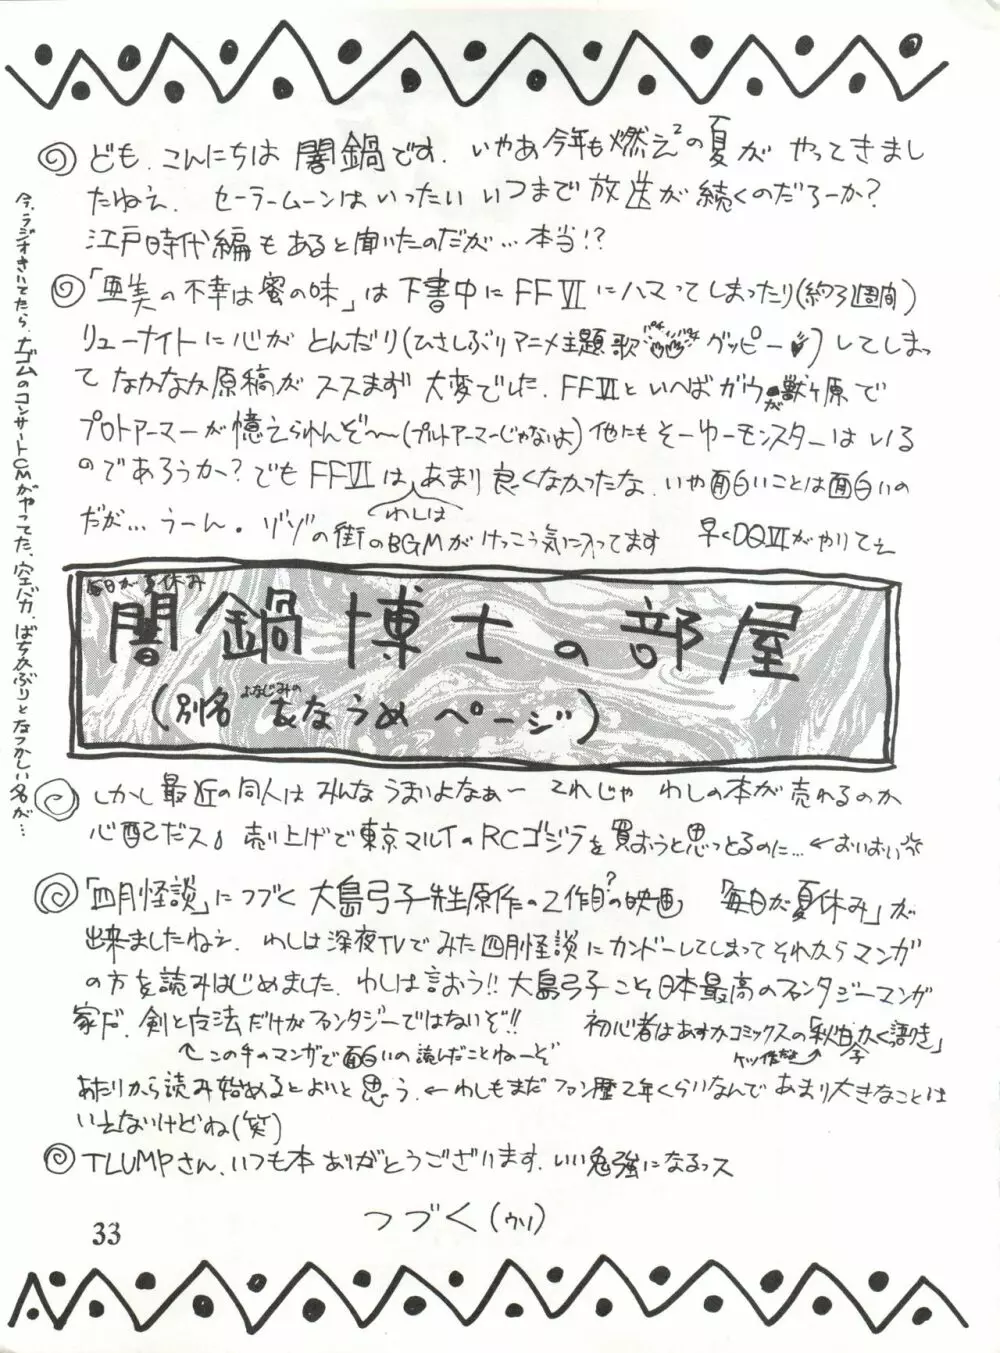 ども、こんにちは闇鍋です。いやあ今年も燃え²の夏がやってきまし
たねえ。セーラームーンはいったいいつまで放送が続くのだろーか?
江戸時代編もあると聞いたのだが…本当!?
「亜美の不幸は蜜の味」は下書中にFFⅥにハマってしまったり(約3週間)
リューナイトに心がとんだり(ひさしぶりアニメ主題歌 グッピー)してしまっ
てなかなか原稿がススまず大変でした。FFⅥといへばガウが獣ヶ原で
プロトアーマーが憶えられんぞ〜(プルトアーマーじゃないよ)他にもそーゆーモンスターはいる
のであろうか?でもFFⅥはあまり良くなかったな。いや面白いことは面白いの
わしは
だが…うーん。ゾゾの街のBGMがけっこう気に入ってます 早くDQⅥがやりてえ
今、ラジオきいてたら、ナゴムのコンサートCMがやってた、空バカ、ばちかぶりとなつかしい名が…
毎日が夏休み
闇鍋博士の部屋
(別名 おなじみの あなうめページ)
しかし最近の同人はみんなうまいよなぁー これじゃわしの本が売れるのか
心配だス。売り上げで東京マルイのRCゴジラを買おうと思っとるのに…←おいおい☆
「四月怪談」につづく大島弓子先生原作の2作目?の映画「毎日が夏休み」が
出来ましたねえ。わしは深夜TVでみた四月怪談にカンドーしてしまってそれからマンガ
の方を読みはじめました。わしは言おう!!大島弓子こそ日本最高のファンタジーマンガ
家だ。剣と魔法だけがファンタジーではないぞ!! 初心者はあすかコミックスの「秋日子かく語りき」
↑この手のマンガで面白いの読んだことねーぞ
ケッ作だよ
あたりから読み始めるとよいと思う。←わしもまだファン歴2年くらいなんであまり大きなことは
いえないけどね(笑)
TLUMPさん、いつも本ありがとうございます。いい勉強になるっス
つづく(ウソ)
33